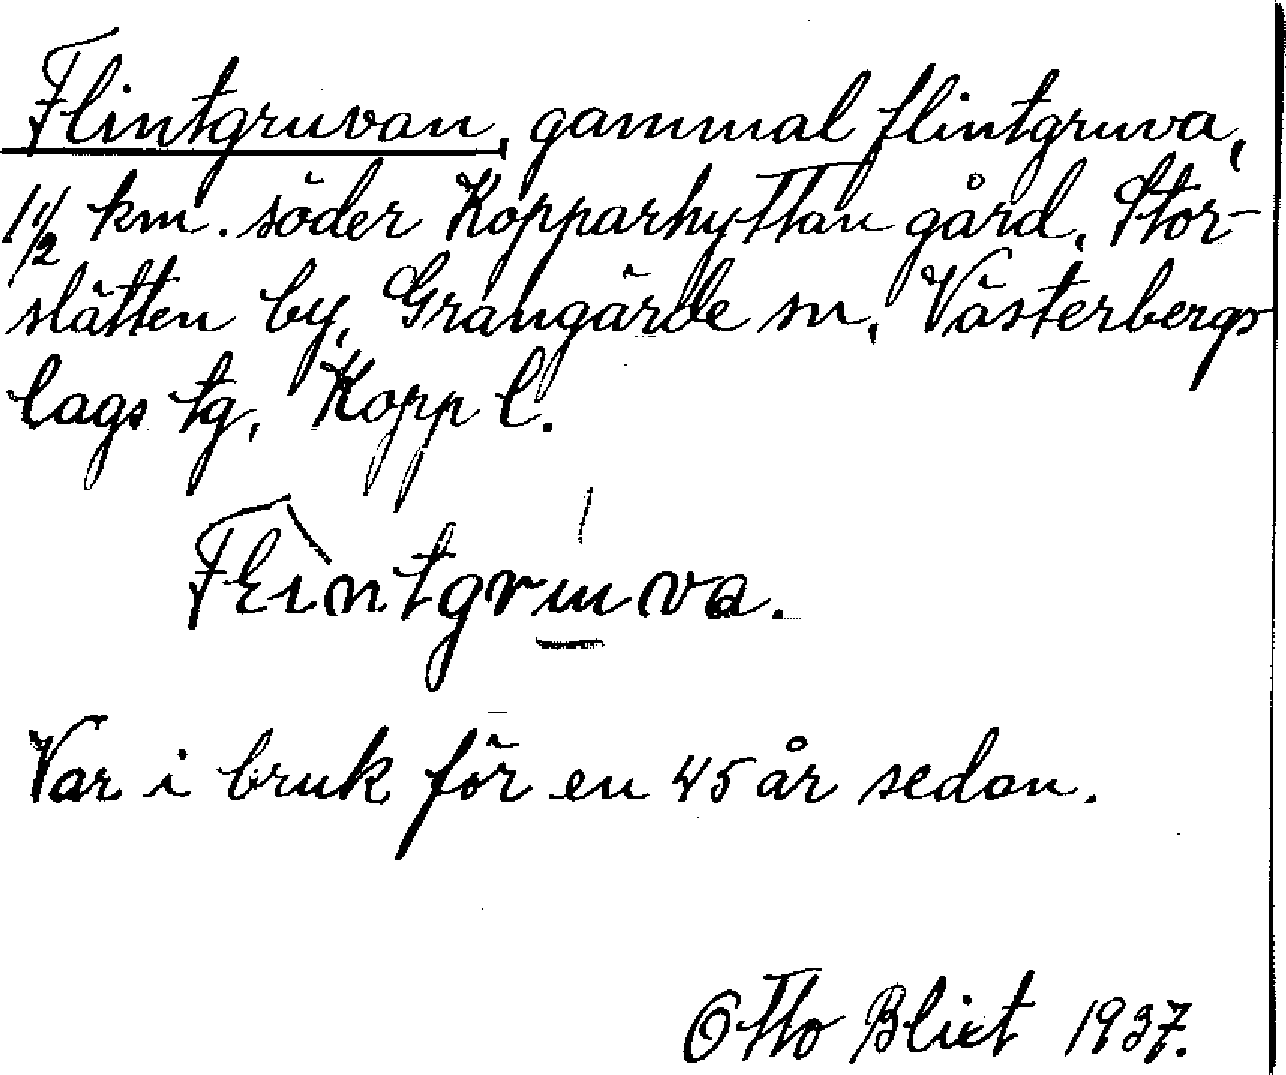 Flintgruvan, gammal flintgruva,
1 1/2 km. söder Kopparhyttan gård, Stor-
slätten by, Grangärde sn, Västerbergs
lags tg, Kopp l.
Flìntgrúva.
Var i bruk för en 45 år sedan.
Otto Blixt 1937.